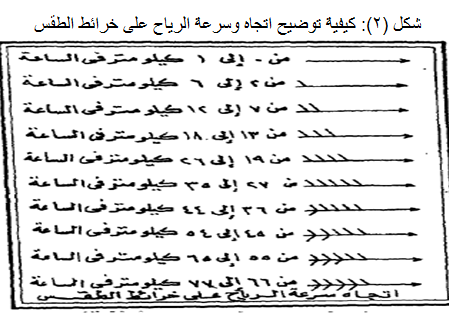 شكل (٢): كيفية توضيح اتجاه وسرعة الرياح على خرائط الطقس
من ٠ إلى ١ كيلومتر فى الساعة
من ٢ إلى ٦ كيلومتر فى الساعة
من ٧ إلى ١٢ كيلومتر فى الساعة
من ١٣ إلى ١٨ كيلومتر فى الساعة
من ١٩ إلى ٢٦ كيلومتر فى الساعة
من ٢٧ إلى ٣٥ كيلومتر فى الساعة
من ٣٦ إلى ٤٤ كيلومتر فى الساعة
من ٤٥ إلى ٥٤ كيلومتر فى الساعة
من ٥٥ إلى ٦٥ كيلومتر فى الساعة
من ٦٦ إلى ٧٧ كيلومتر فى الساعة
اتجاه سرعة الرياح على خرائط الطقس